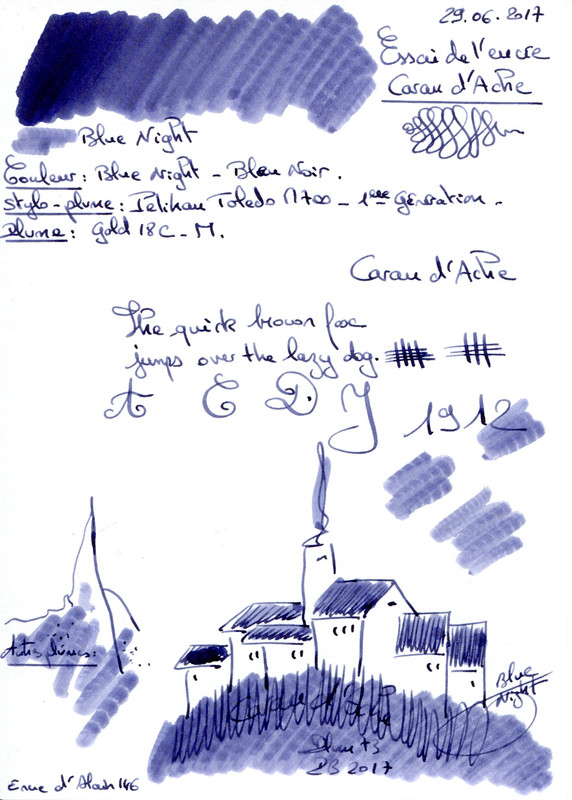 29.06.2017
Essai de l'encre
Caran d'Ache
Blue Night
Couleur : Blue Night - Bleu Noir.
Stylo-plume : Pelikan Toledo M700 - 1ère Génération -
Plume : Gold 18C - M.
Caran d'Ache
The quick brown fox
jumps over the lazy dog.
A E D J 1912
Autres plumes :
Blue
Night
Caran d'Ache
2017
Encre d'Alain 146